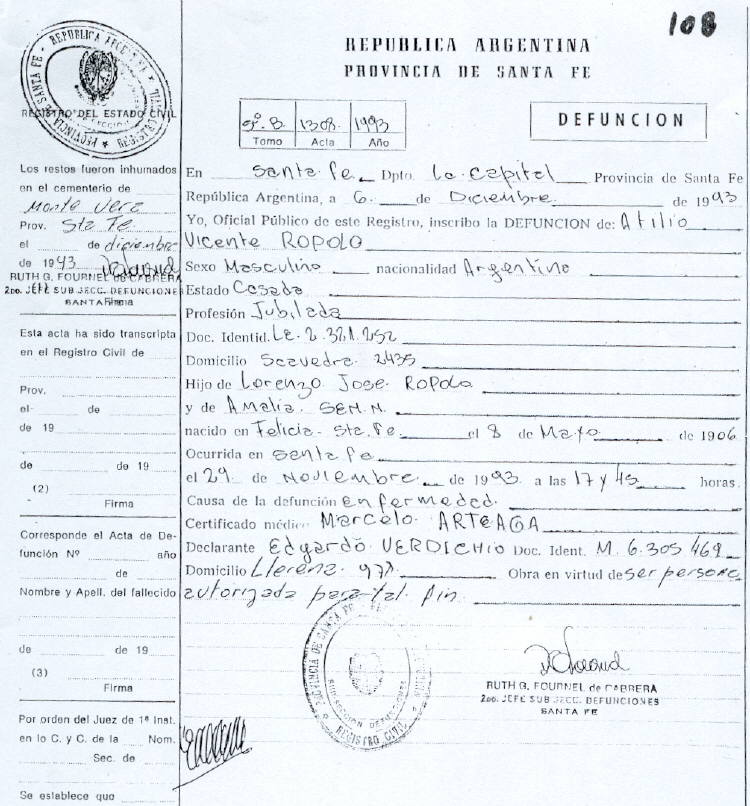 108
REPUBLICA ARGENTINA
PROVINCIA DE SANTA FE
REPUBLICA ARGENTINA
PROVINCIA DE SANTA FE
REGISTRO DEL ESTADO CIVIL
1308 1993
Tomo Acta Año
DEFUNCION
Los restos fueron inhumados
en el cementerio de
Monte Vera
Prov. Sta Fe
el de diciembre
de 1993
RUTH G. FOURNEL DE CABRERA
2do. JEFE SUB SECC. DEFUNCIONES
SANTA FE
Firma
Esta acta ha sido transcripta
en el Registro Civil de
Prov.
el de
de 19
de de 19
(2)
Firma
Corresponde el Acta de De-
función Nº año
de
Nombre y Apell. del fallecido
de de 19
(3)
Firma
Por orden del Juez de 1ª Inst.
en lo C. y C. de la Nom.
Sec. de
Se establece que
En Santa Fe Dpto. La Capital Provincia de Santa Fe
República Argentina, a 6 de Diciembre de 1993
Yo, Oficial Público de este Registro, inscribo la DEFUNCION de: Atilio
Vicente ROPOLO
Sexo Masculino nacionalidad Argentino
Estado Casado
Profesión Jubilado
Doc. Identid. Le. 2.321.252
Domicilio Saavedra 2435
Hijo de Lorenzo Jose ROPOLO
y de Amalia
nacido en Felicia - Sta. Fe el 8 de Mayo de 1906
Ocurrida en Santa Fe
el 29 de Noviembre de 1993 a las 17 y 45 horas.
Causa de la defunción enfermedad.
Certificado médico Marcelo ARTEAGA
Declarante Edgardo VERDICHIO Doc. Ident. M. 6.305.469
Domicilio Llerena 971 Obra en virtud de ser persona
autorizada para tal fin
PROVINCIA DE SANTA FE
SUBDIRECCION DEFUNCIONES
REGISTRO CIVIL
RUTH G. FOURNEL de CABRERA
2do. JEFE SUB SECC. DEFUNCIONES
SANTA FE